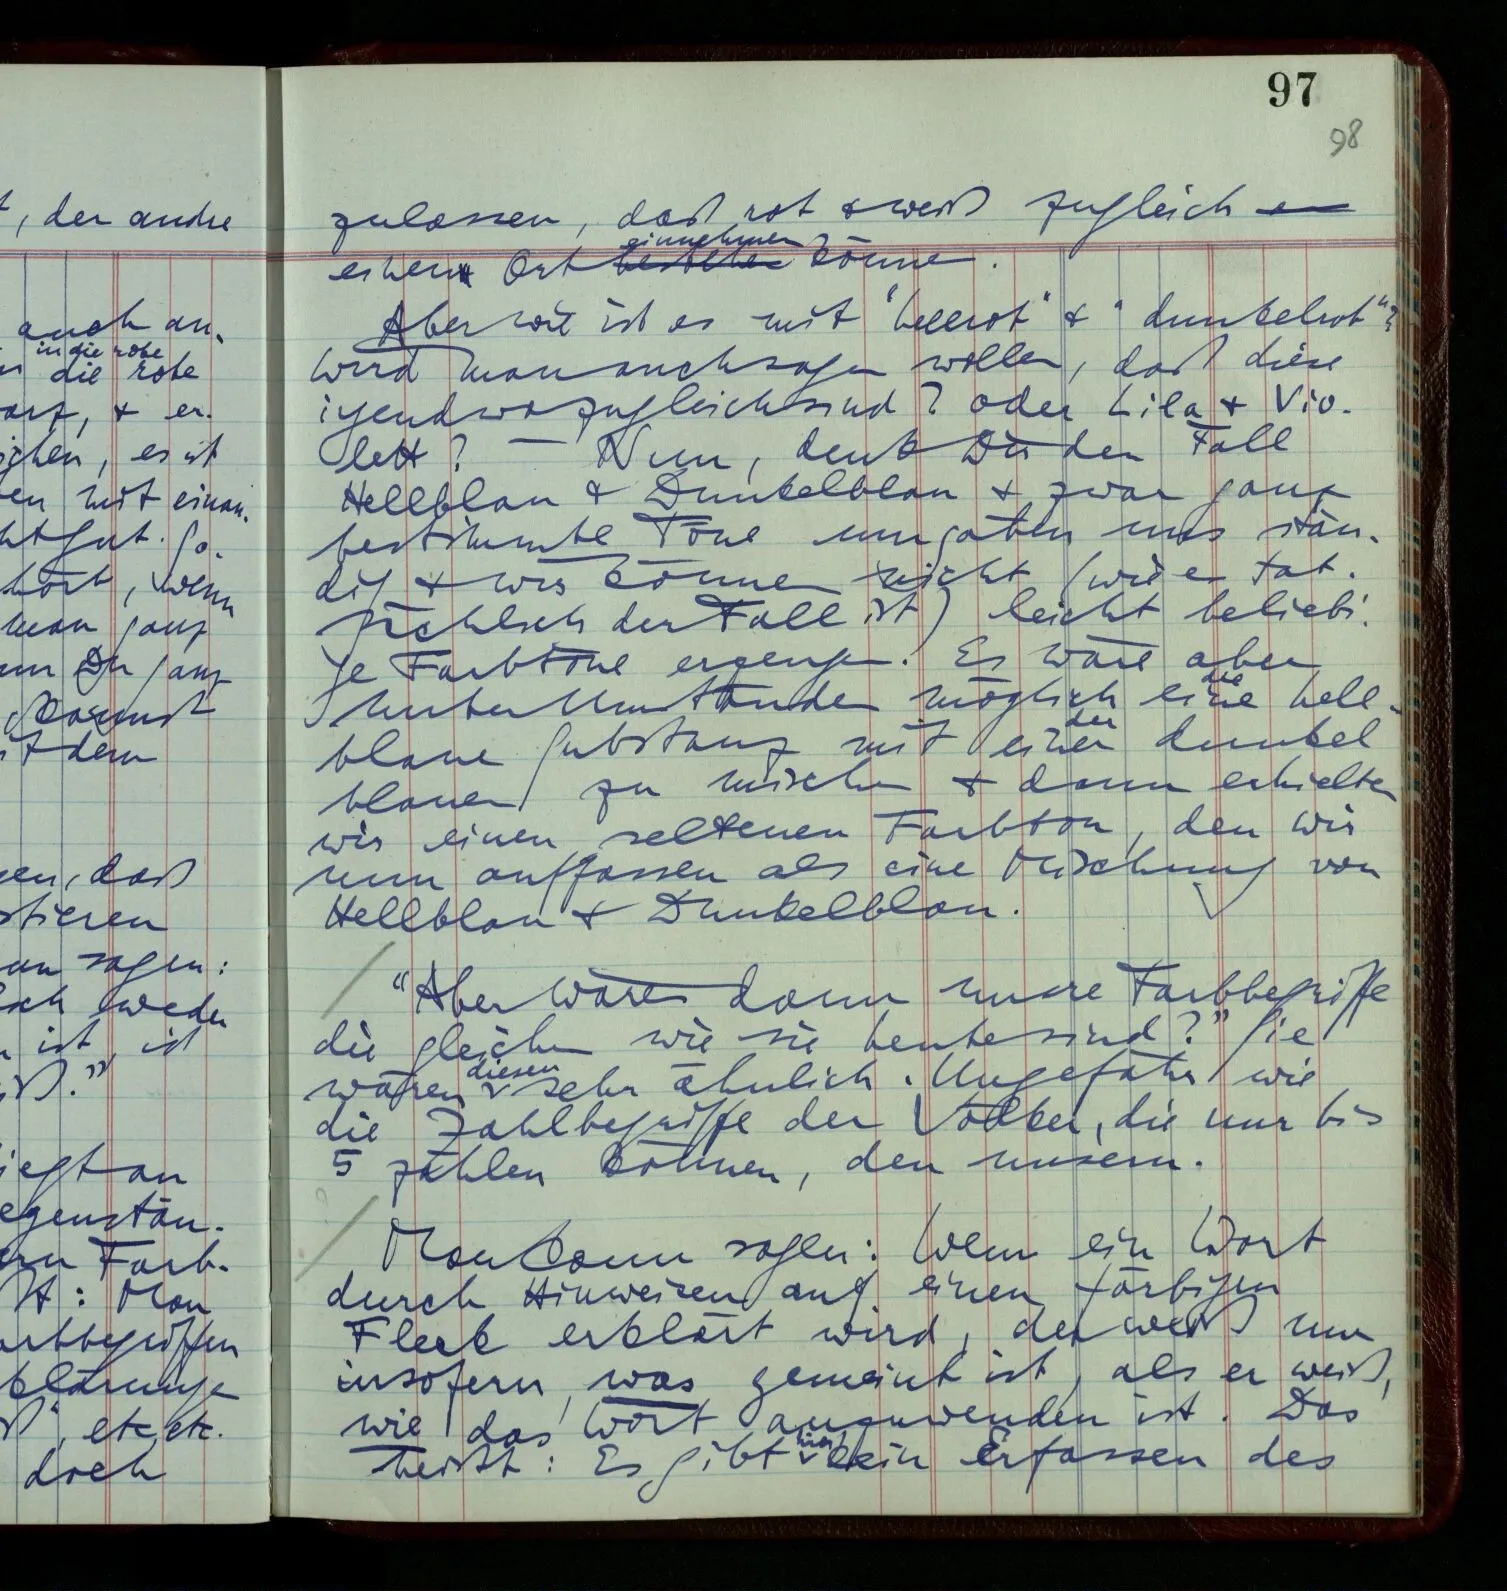 97
98
t, der andre
auch an-
in die rote
die rote
arf, & er-
ichen, es ist
en mit einan-
htgut. Go-
hört, wenn
man ganz
nn Du ganz
kommst
it dem
en, daß
stieren
an sagen:
ich weder
ist, ist
ß."
iegt an
egenstän-
ern Farb-
lt: Man
arbbegriffen
klärunge
ß", etc etc.
doch
zulassen, daß rot & weiß zugleich
einnehmen
einen Ort bestehen könne.
Aber wie ist es mit "hellrot" & "dunkelrot"?
Wird man auch sagen wollen, daß diese
irgendwo zugleich sind? oder Lila & Vio-
lett? — Nun, denk Dir den Fall
Hellblau & Dunkelblau & zwar ganz
bestimmte Töne umgäben uns stän-
dig & wir können nicht (wie es tat-
sächlich der Fall ist) leicht beliebi-
ge Farbtöne erzeugen. Es wäre aber
die
unter Umständen möglich eine hell-
der
blaue Substanz mit einer dunkel
blauen zu mischen & dann erhielten
wir einen seltenen Farbton, den wir
nun auffassen als eine Mischung von
Hellblau & Dunkelblau.
"Aber wären dann unsre Farbbegriffe
die gleichen wie sie heute sind?" Sie
diesen
wären sehr ähnlich. Ungefähr wie
die Zahlbegriffe der Völker, die nur bis
5 zählen können, den unsern.
Man kann sagen: Wem ein Wort
durch Hinweisen auf einen färbigen
Fleck erklärt wird, der weiß nur
insofern was gemeint ist, als er weiß,
wie das Wort anzuwenden ist. Das
hier
heißt: Es gibt kein Erfassen des